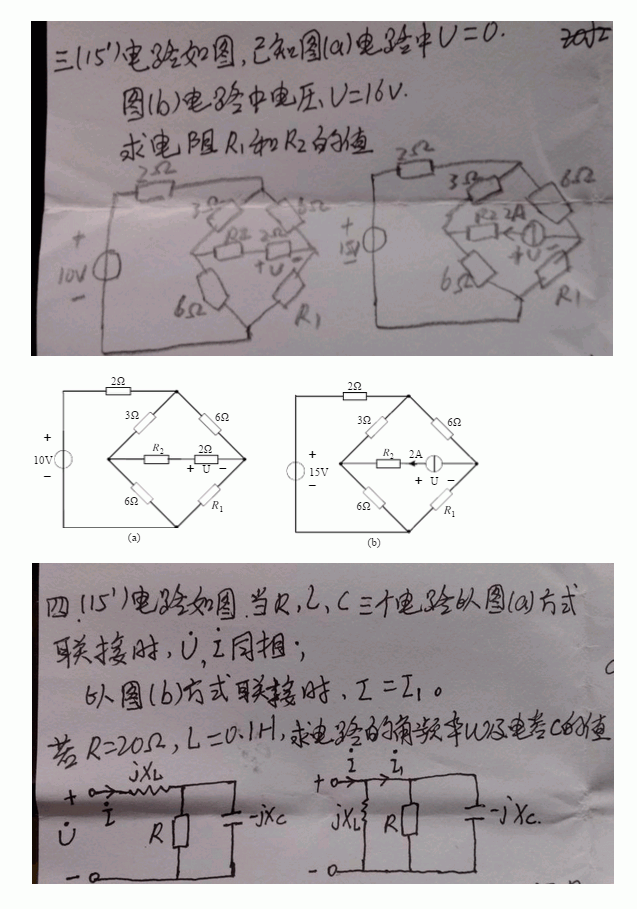 三(15')电路如图,已知图(a)电路中U=0.
图(b)电路中电压,U=16V.
求电阻R1和R2的值
2Ω
3Ω
6Ω
R2
2Ω
+ U −
+
10V
−
6Ω
R1
2Ω
3Ω
6Ω
R2 2A
+ U −
+
15V
−
6Ω
R1
2Ω
3Ω
6Ω
R2
2Ω
+ U −
+
10V
−
6Ω
R1
(a)
2Ω
3Ω
6Ω
R2
2A
+ U −
+
15V
−
6Ω
R1
(b)
四.(15')电路如图.当R,L,C三个电路以图(a)方式
联接时,U̇,İ同相;
以图(b)方式联接时,I=I1。
若R=20Ω,L=0.1H,求电路的角频率W及电容C的值
jXL
+
İ
U̇
R
-jXc
−
+
İ
İ1
jXL
R
-jXc.
−